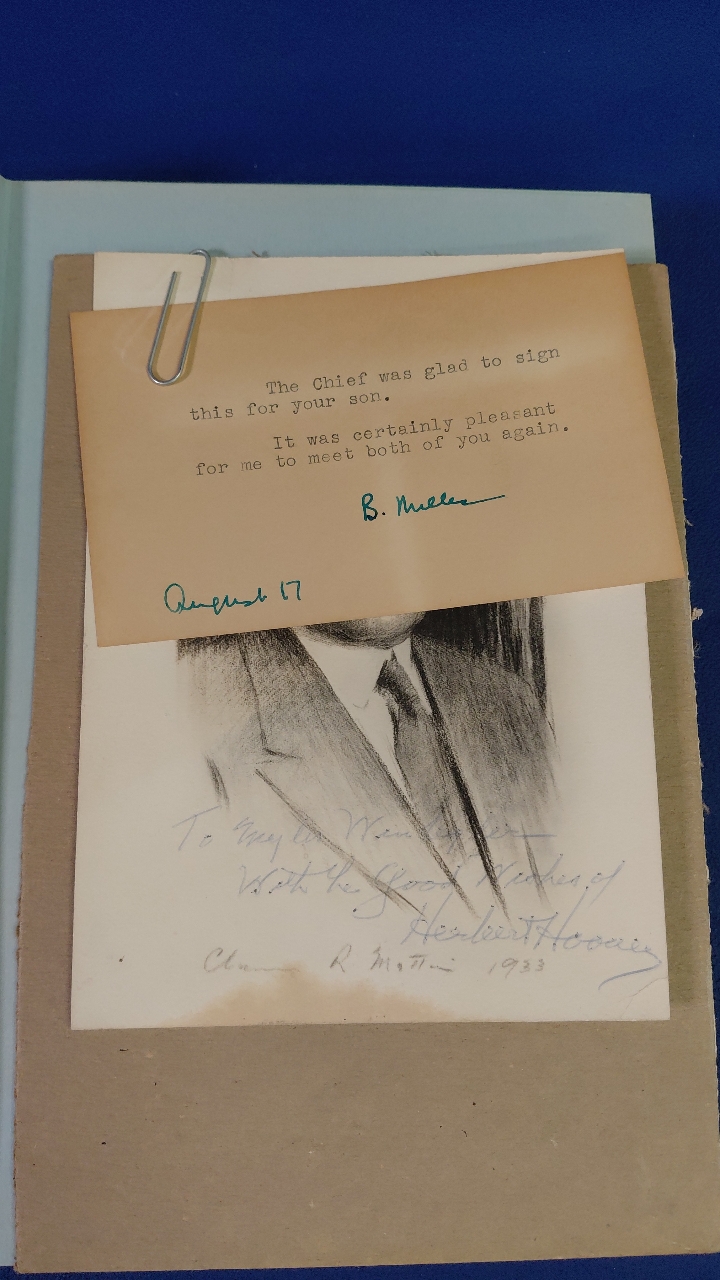 The Chief was glad to sign
this for your son.
It was certainly pleasant
for me to meet both of you again.
B. Miller
August 17
To
With the Good Wishes of
Herbert Hoover
R 1933